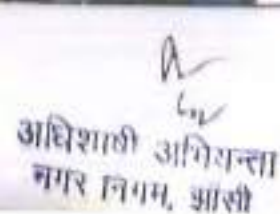 अधिशाषी अभियन्ता
नगर निगम, झांसी